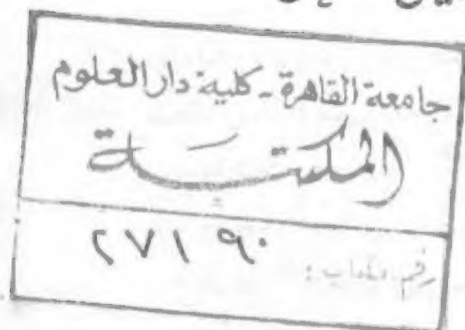 جامعة القاهرة - كلية دار العلوم
المكتبة
٢٧١٩٠